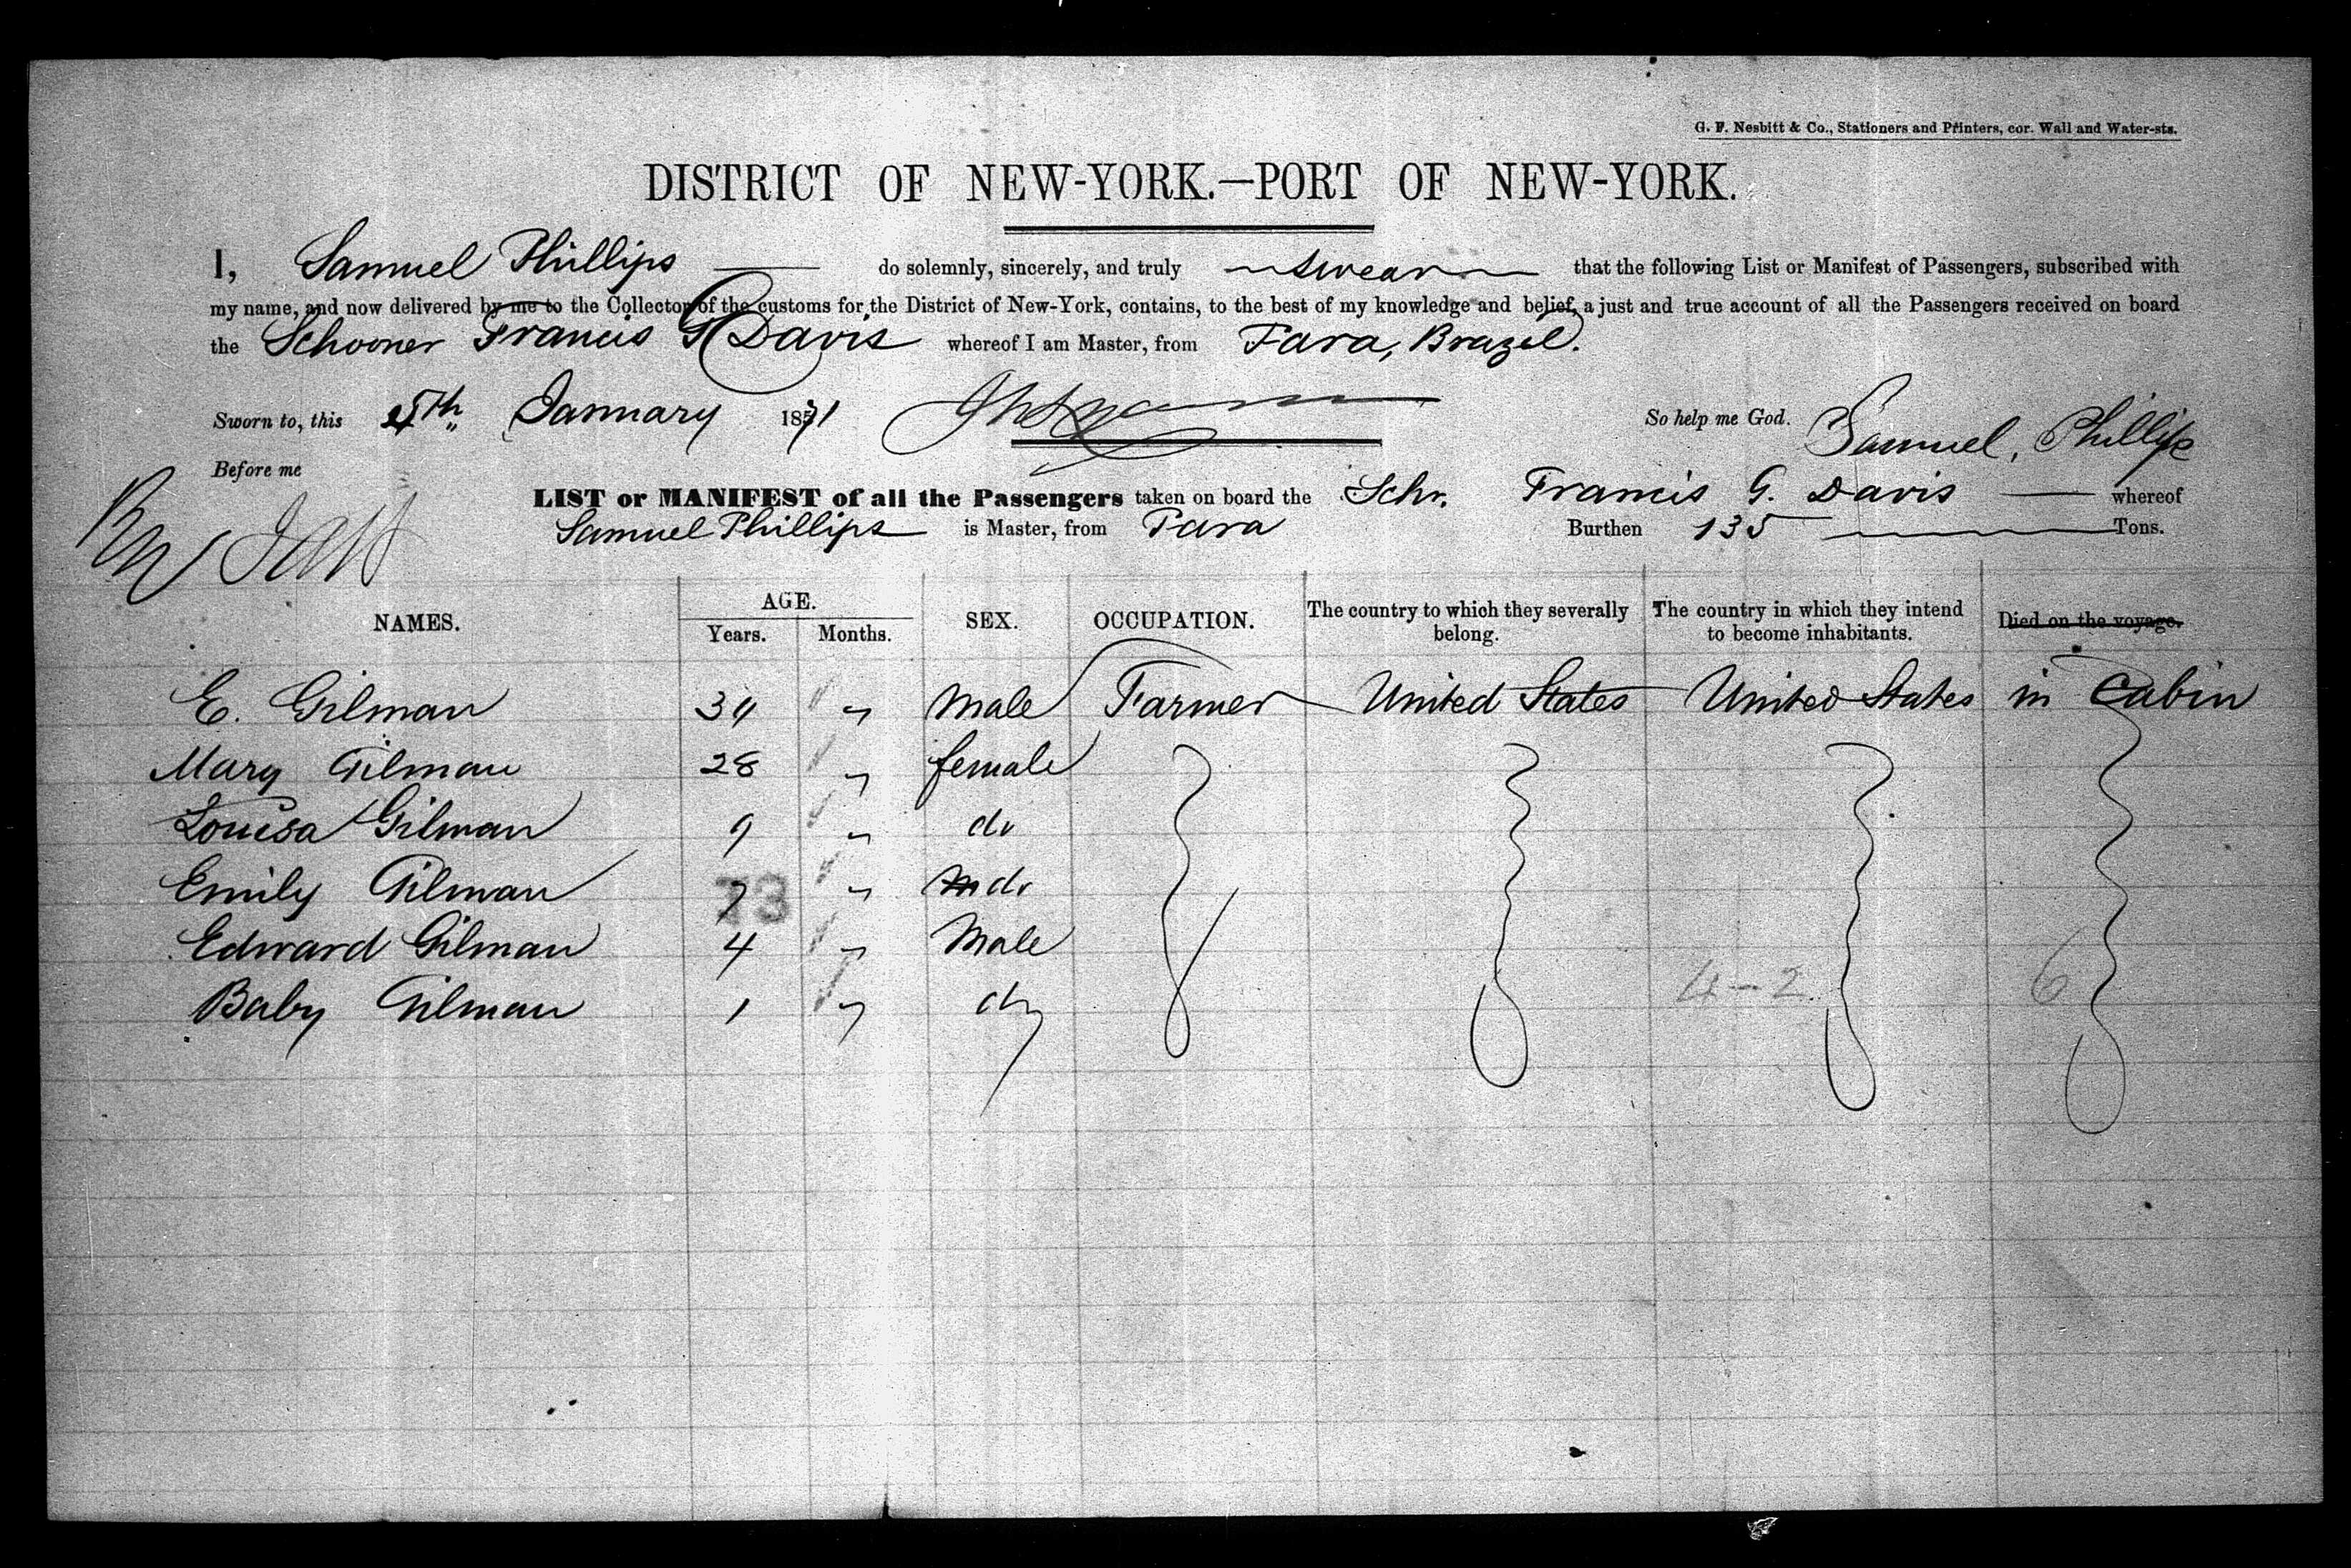 G. F. Nesbitt & Co., Stationers and Printers, cor. Wall and Water-sts.
DISTRICT OF NEW-YORK.—PORT OF NEW-YORK.
I, Samuel Phillips do solemnly, sincerely, and truly swear that the following List or Manifest of Passengers, subscribed with
my name, and now delivered by me to the Collector of the customs for the District of New-York, contains, to the best of my knowledge and belief, a just and true account of all the Passengers received on board
the Schooner Francis G Davis whereof I am Master, from Para, Brazil.
Sworn to, this 5th January 1871 So help me God. Samuel, Phillips
Before me
LIST or MANIFEST of all the Passengers taken on board the Schr. Francis G. Davis whereof
Samuel Phillips is Master, from Para Burthen 135 Tons.
NAMES. AGE. Years. Months. SEX. OCCUPATION. The country to which they severally belong. The country in which they intend to become inhabitants. Died on the voyage.
E. Gilman 34 " Male Farmer United States United States in Cabin
Mary Gilman 28 " female
Louisa Gilman 9 " do
Emily Gilman 7 " do
73
Edward Gilman 4 " Male
4-2 6
Baby Gilman 1 " do